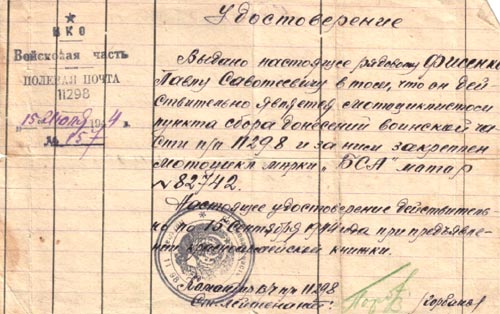 Удостоверение
НКО
Войсковая часть
ПОЛЕВАЯ ПОЧТА
11298
194
№ 157
Выдано настоящее рядовому Фисенко
Павлу Савотеевичу в том, что он дей
ствительно является мотоциклистом
пункта сбора донесений воинской ча
сти п/п 11298 и за ним закреплен
мотоцикл марки "БСА" матор
N 82742.
Настоящее удостоверение действитель
но по 15 Сентября 1944 года при предъявле
нии красноармейской книжки.
Командир в/ч пп 11298
Ст. лейтенант: